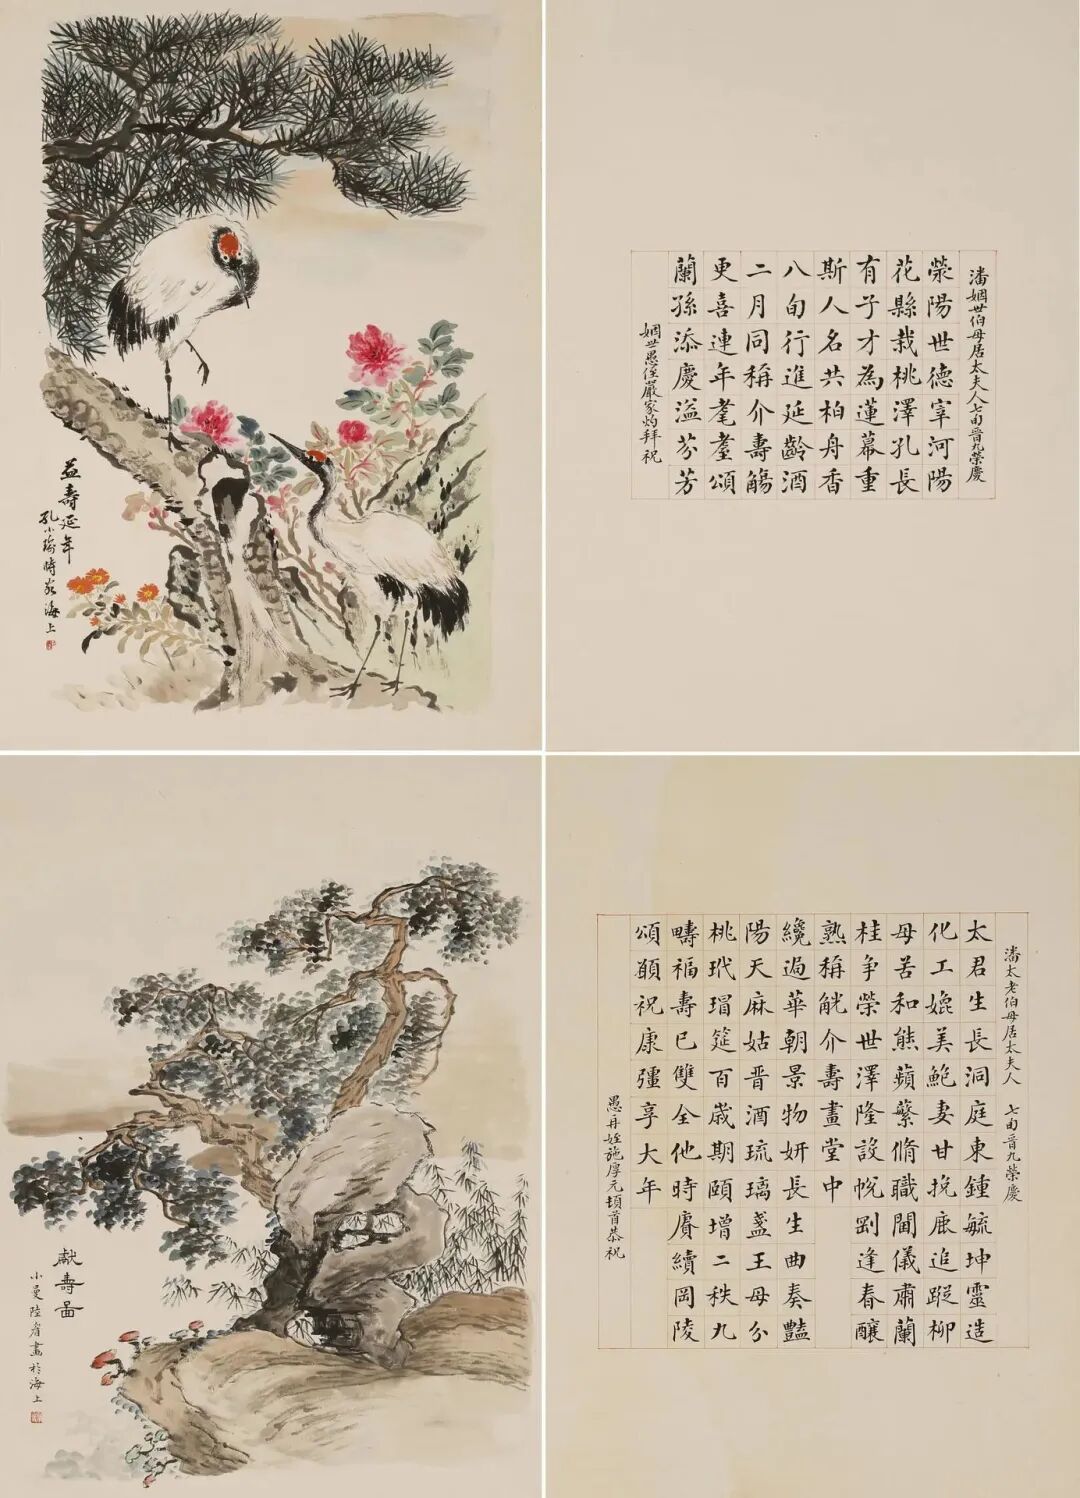 益壽延年
孔小瑜時客海上
潘姻世伯母居太夫人七旬晉九榮慶
滎陽世德宰河陽
花縣栽桃澤孔長
有子才為蓮幕重
斯人名共柏舟香
八旬行進延齡酒
二月同稱介壽觴
更喜連年耄耋頌
蘭孫添慶溢芬芳
姻世愚侄嚴家灼拜祝
獻壽圖
小曼陸眉畫於海上
潘太老伯母居太夫人 七旬晉九榮慶
太君生長洞庭東鍾毓坤靈造
化工媲美鮑妻甘挽鹿追蹤柳
母苦和熊蘋蘩脩職閫儀肅蘭
桂爭榮世澤隆設帨剛逢春釀
熟稱觥介壽畫堂中
纔過華朝景物妍長生曲奏豔
陽天麻姑晋酒琉璃盞王母分
桃玳瑁筵百歲期頤增二秩九
疇福壽已雙全他時賡續岡陵
頌願祝康彊享大年
愚再姪施厚元頓首恭祝